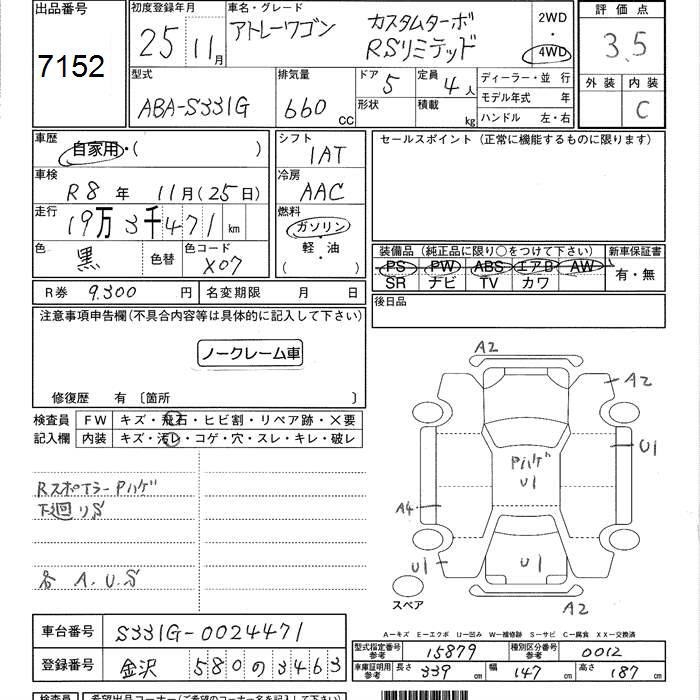 出品番号
7152
初度登録年月
25 11月
車名・グレード
アトレーワゴン カスタムターボ
RSリミテッド
2WD
・
4WD
評価点
3.5
外装 内装
C
型式
ABA-S331G
排気量
660 CC
ドア 5
形状
定員 4人
積載 kg
ディーラー・並行
モデル年式 年
ハンドル 左・右
車歴
自家用・( )
車検
R8年 11月(25日)
走行
19万3千471 km
色 黒
色替
色コード X07
シフト
IAT
冷房
AAC
燃料
ガソリン
・
軽・油
( )
セールスポイント(正常に機能するものに限ります)
装備品(純正品に限り○をつけて下さい) 新車保証書
PS PW ABS エアB AW
SR ナビ TV カワ
有・無
後日品
R券 9.300円 名変期限 月 日
注意事項申告欄(不具合内容等は具体的に記入して下さい)
ノークレーム車
修復歴 有〔箇所 〕
検査員 FW キズ・飛石・ヒビ割・リペア跡・×要
記入欄 内装 キズ・汚レ・コゲ・穴・スレ・キレ・破レ
Rスポイラー Pハゲ
下廻りS
各 A.U.S
A2
A2
U1
Pハゲ
U1
A4
U1
U1
A2
スペア
A-キズ E-エクボ U-凹み W-補修跡 S-サビ C-腐食 XX-交換済
車台番号 S331G-0024471
登録番号 金沢 580 の 3463
型式指定番号
参考
15879
種別区分番号
参考
0012
車庫証明用
参考
長さ 339 cm 幅 147 cm 高さ 187 cm
検査員 希望出品コーナー(ご希望のコーナーが